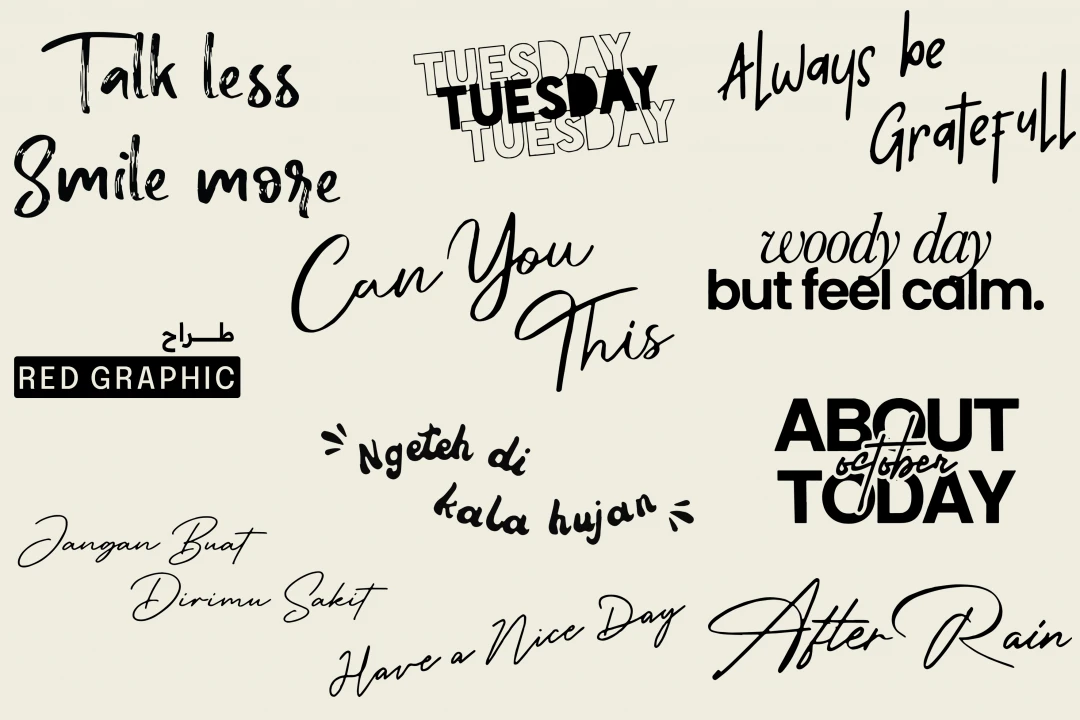 Talk less
Smile more
TUESDAY
TUESDAY
TUESDAY
Always be
Gratefull
Can You
This
woody day
but feel calm.
طراح
RED GRAPHIC
Ngeteh di
kala hujan
ABOUT
october
TODAY
Jangan Buat
Dirimu Sakit
Have a Nice Day
After Rain